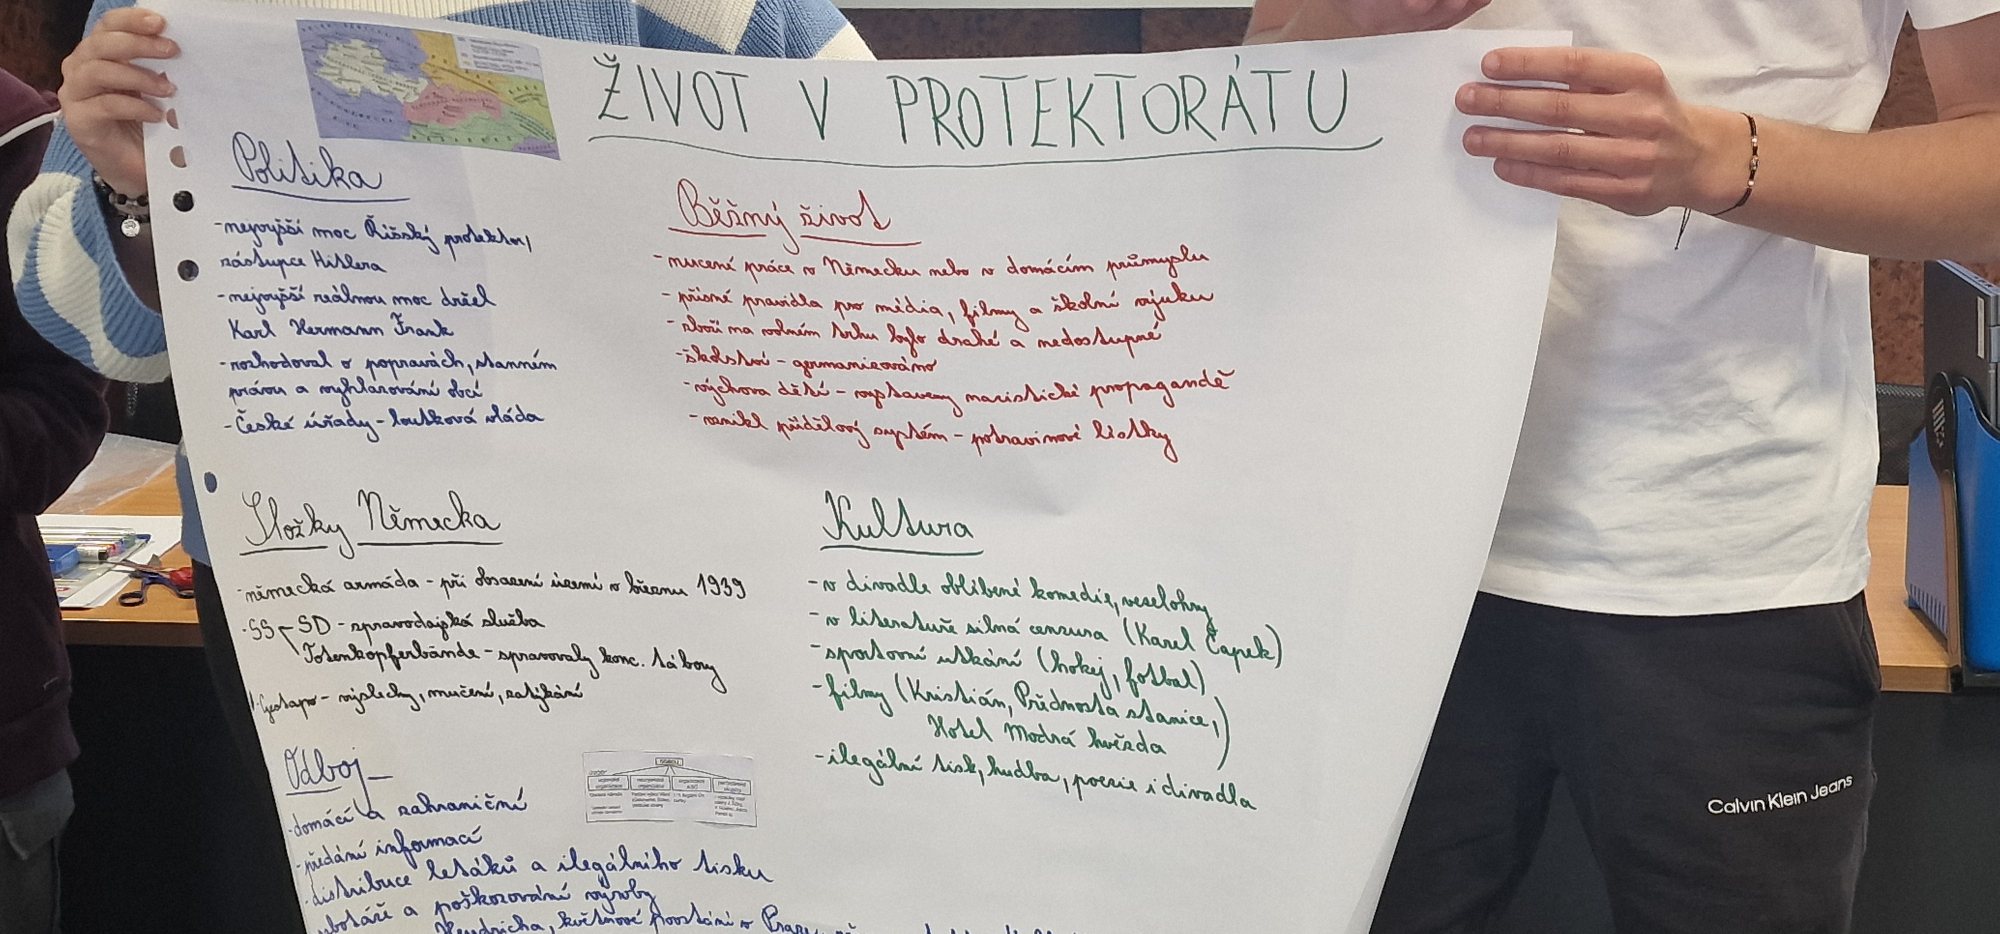 ŽIVOT V PROTEKTORÁTU
Politika
-nejvyšší moc Říšský protektor,
zástupce Hitlera
-nejvyšší reálnou moc držel
Karl Hermann Frank
-rozhodoval o popravách, stanném
právu a vyhlazování obcí
-České úřady - loutková vláda
Běžný život
-nucené práce v Německu nebo v domácím průmyslu
-přísné pravidla pro média, filmy a školní výuku
-zboží na volném trhu bylo drahé a nedostupné
-školství - germanizováno
-výchova dětí - vystaveny nacistické propagandě
-vznikl přídělový systém - potravinové lístky
Složky Německa
-německá armáda - při obsazení území v březnu 1939
-SS SD - zpravodajská služba
Totenkopferbände - spravovaly konc. tábory
Gestapo - výslechy, mučení, zatýkání
Kultura
-v divadle oblíbené komedie, veselohry
-v literatuře silná cenzura (Karel Čapek)
-sportovní utkání (hokej, fotbal)
-filmy (Kristián, Přednosta stanice,
Hotel Modrá hvězda)
-ilegální tisk, hudba, poezie i divadla
Odboj
-domácí a zahraniční
-předání informací
-distribuce letáků a ilegálního tisku
a poškozování výroby
Heydricha, květnové povstání v Praze
Calvin Klein Jeans